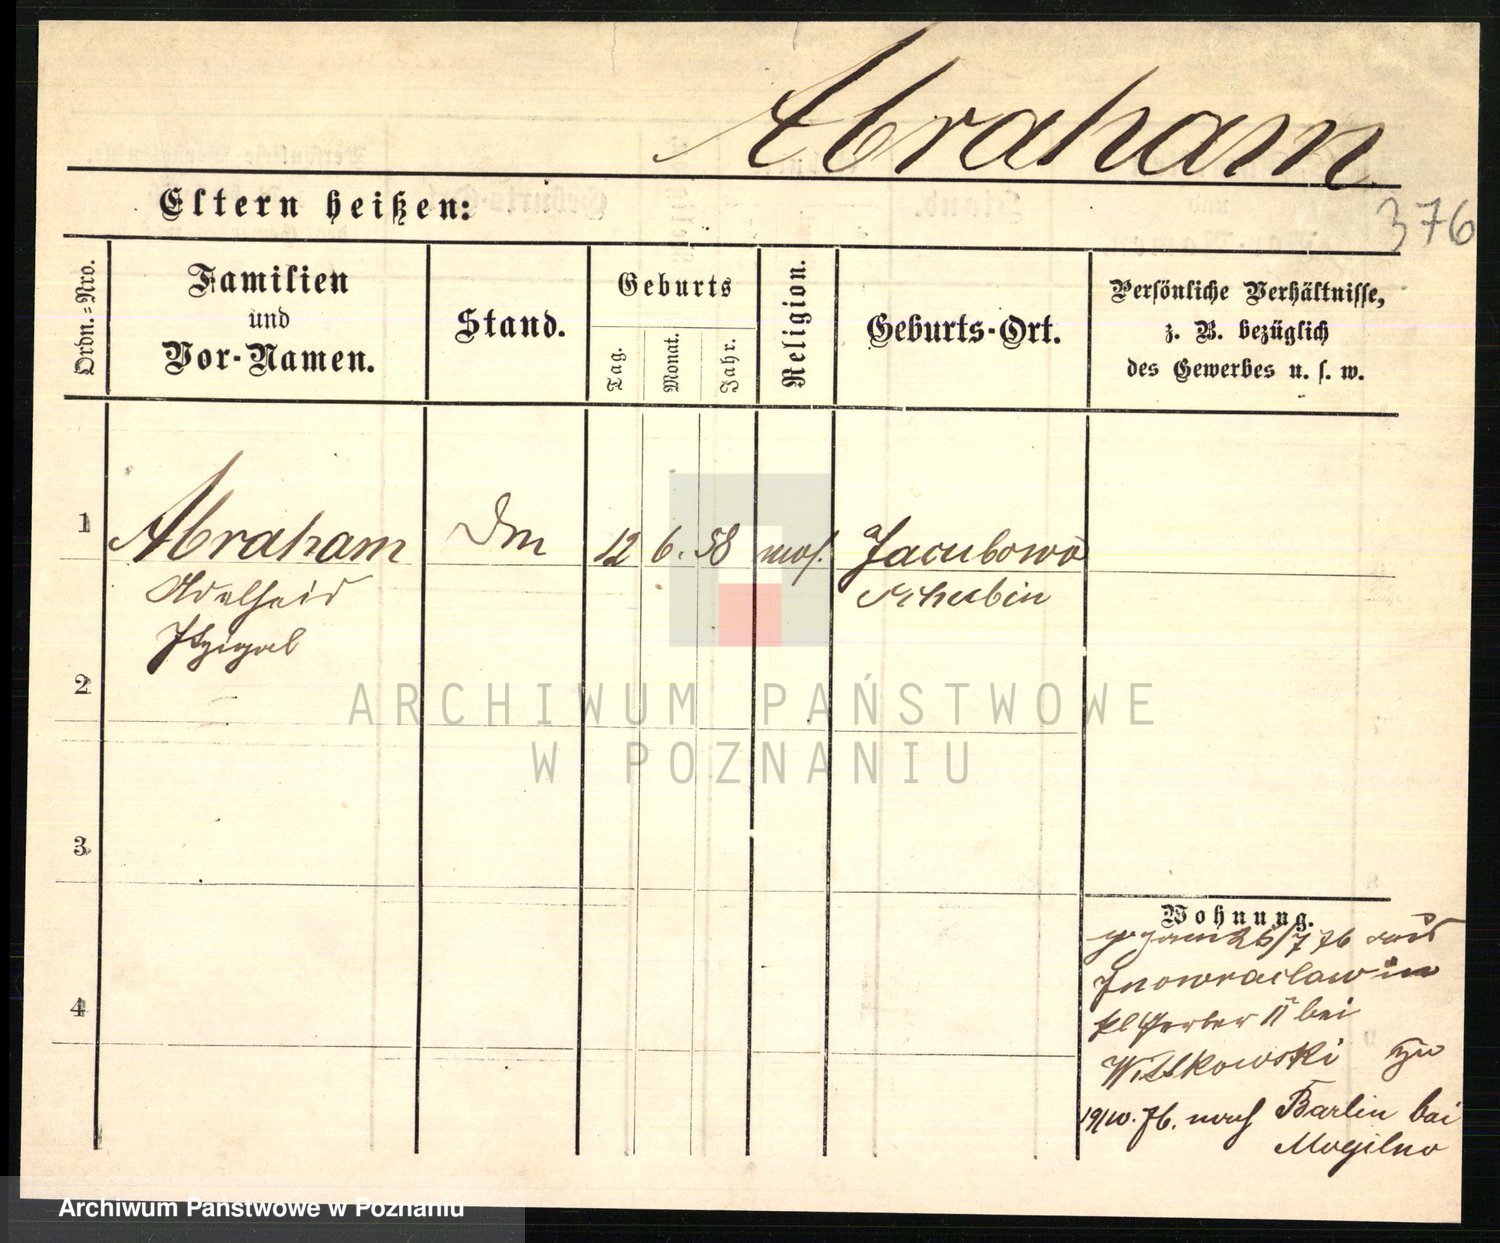 Abraham
376
Eltern heißen:
Ordn.-Nro.
Familien
und
Vor-Namen.
Stand.
Geburts
Tag.
Monat.
Jahr.
Religion.
Geburts-Ort.
Persönliche Verhältnisse,
z. B. bezüglich
des Gewerbes u. s. w.
1 Abraham 12 6. 58 mos. Jacubowo
Adelheid Schubin
2
3
4
Wohnung.
26/7 76 aus
Inowraclaw in
kl Gerber 11 bei
Wittkowski zu
19/10. 76. nach Barlin bei
Mogilno
ARCHIWUM PAŃSTWOWE
W POZNANIU
Archiwum Państwowe w Poznaniu